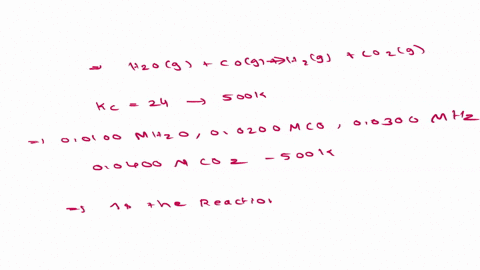 = H2O(g) + CO(g) ⇌ H2(g) + CO2(g)
Kc = 24 → 500K
→ 0.0100 M H2O, 0.0200 M CO, 0.0300 M H2
0.0400 M CO2 - 500K
→ As the Reaction